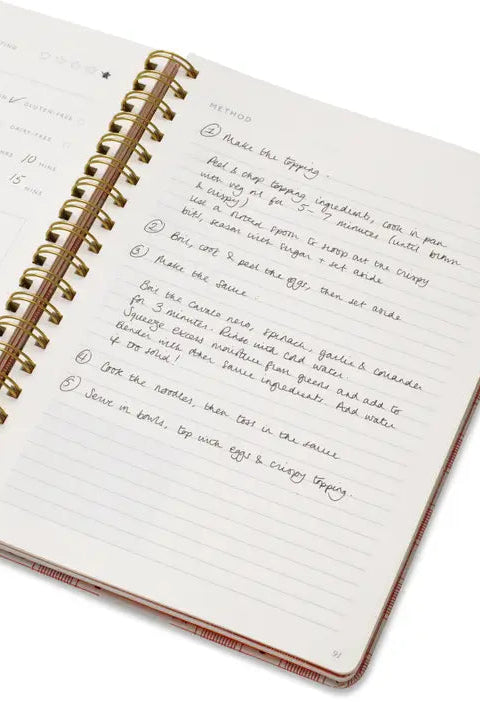 GLUTEN-FREE
DAIRY-FREE
10 MINS
15 MINS
METHOD
1 Make the topping.
Peel & chop topping ingredients, cook in pan
with veg oil for 5-7 minutes (until brown
& crispy)
Use a slotted spoon to scoop out the crispy
bits, season with sugar + set aside
2 Boil, cool & peel the eggs, then set aside
3 Make the sauce:
Boil the cavalo nero, spinach, garlic & coriander
for 3 minutes. Rinse with cold water.
Squeeze excess moisture from greens and add to
blender with other sauce ingredients. Add water
if too solid!
4 Cook the noodles, then toss in the sauce
5 Serve in bowls, top with eggs & crispy topping.
91